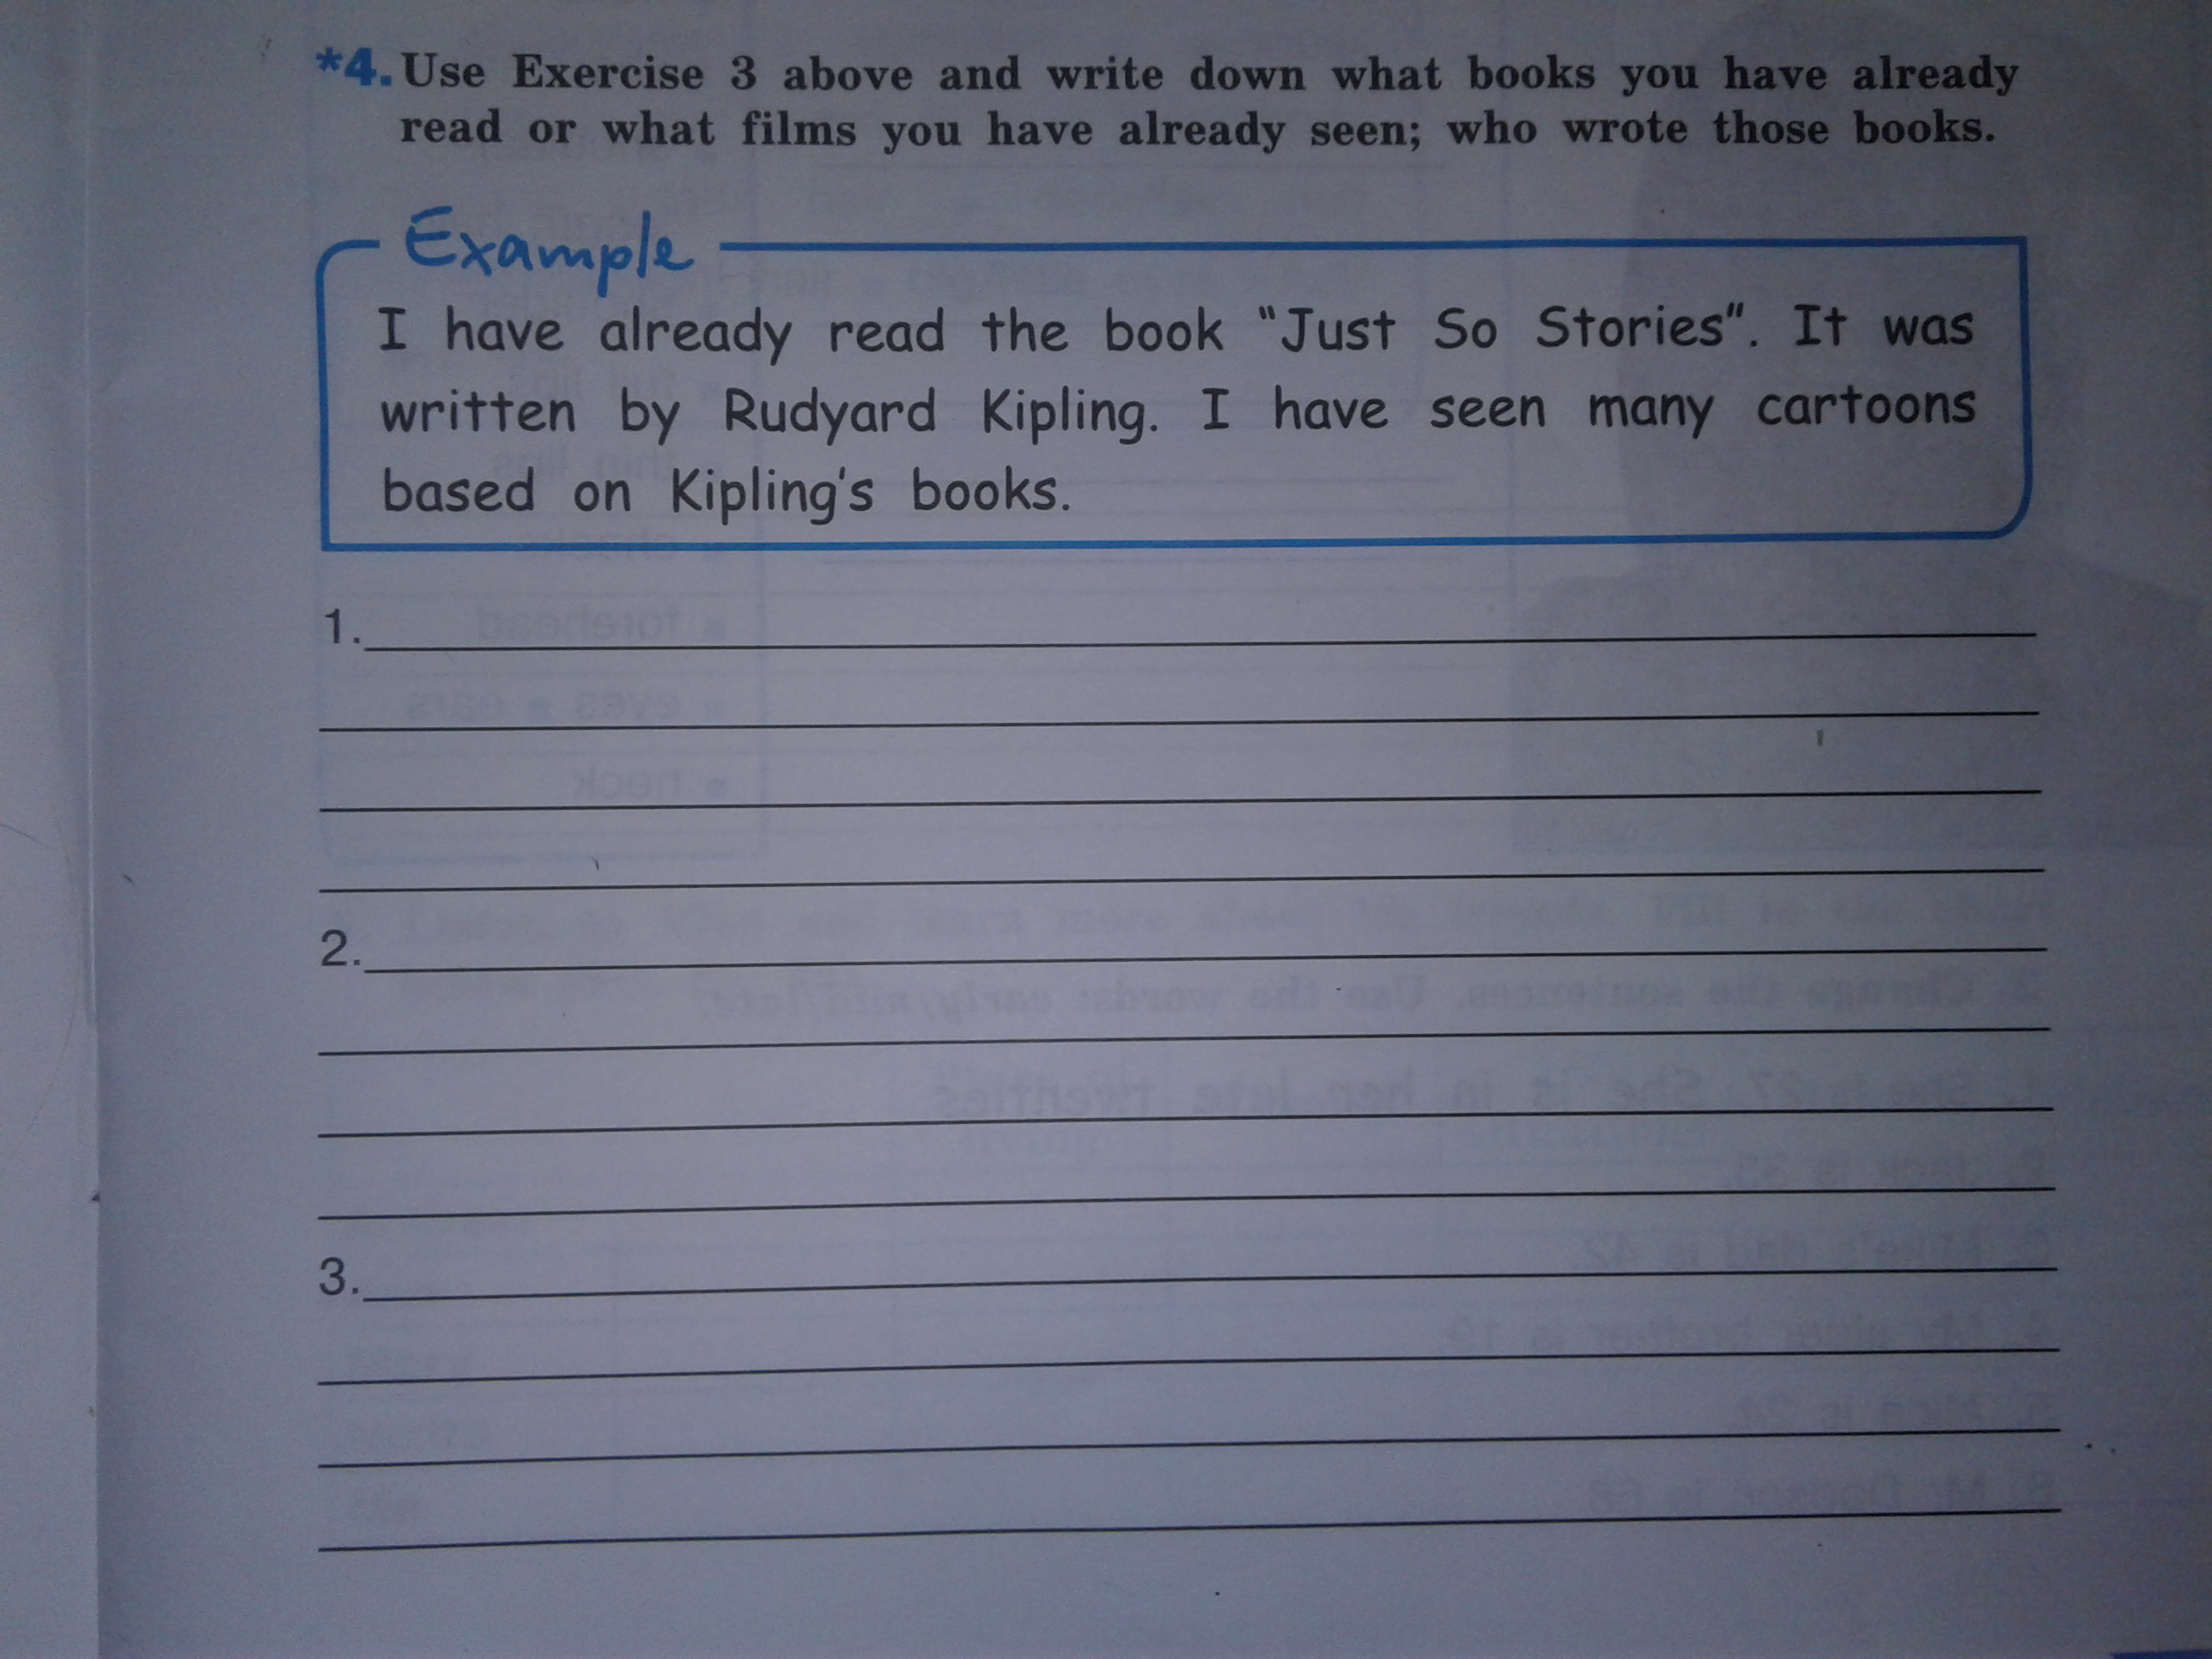 *4. Use Exercise 3 above and write down what books you have already
read or what films you have already seen; who wrote those books.
Example
I have already read the book "Just So Stories". It was
written by Rudyard Kipling. I have seen many cartoons
based on Kipling's books.
1.
2.
3.